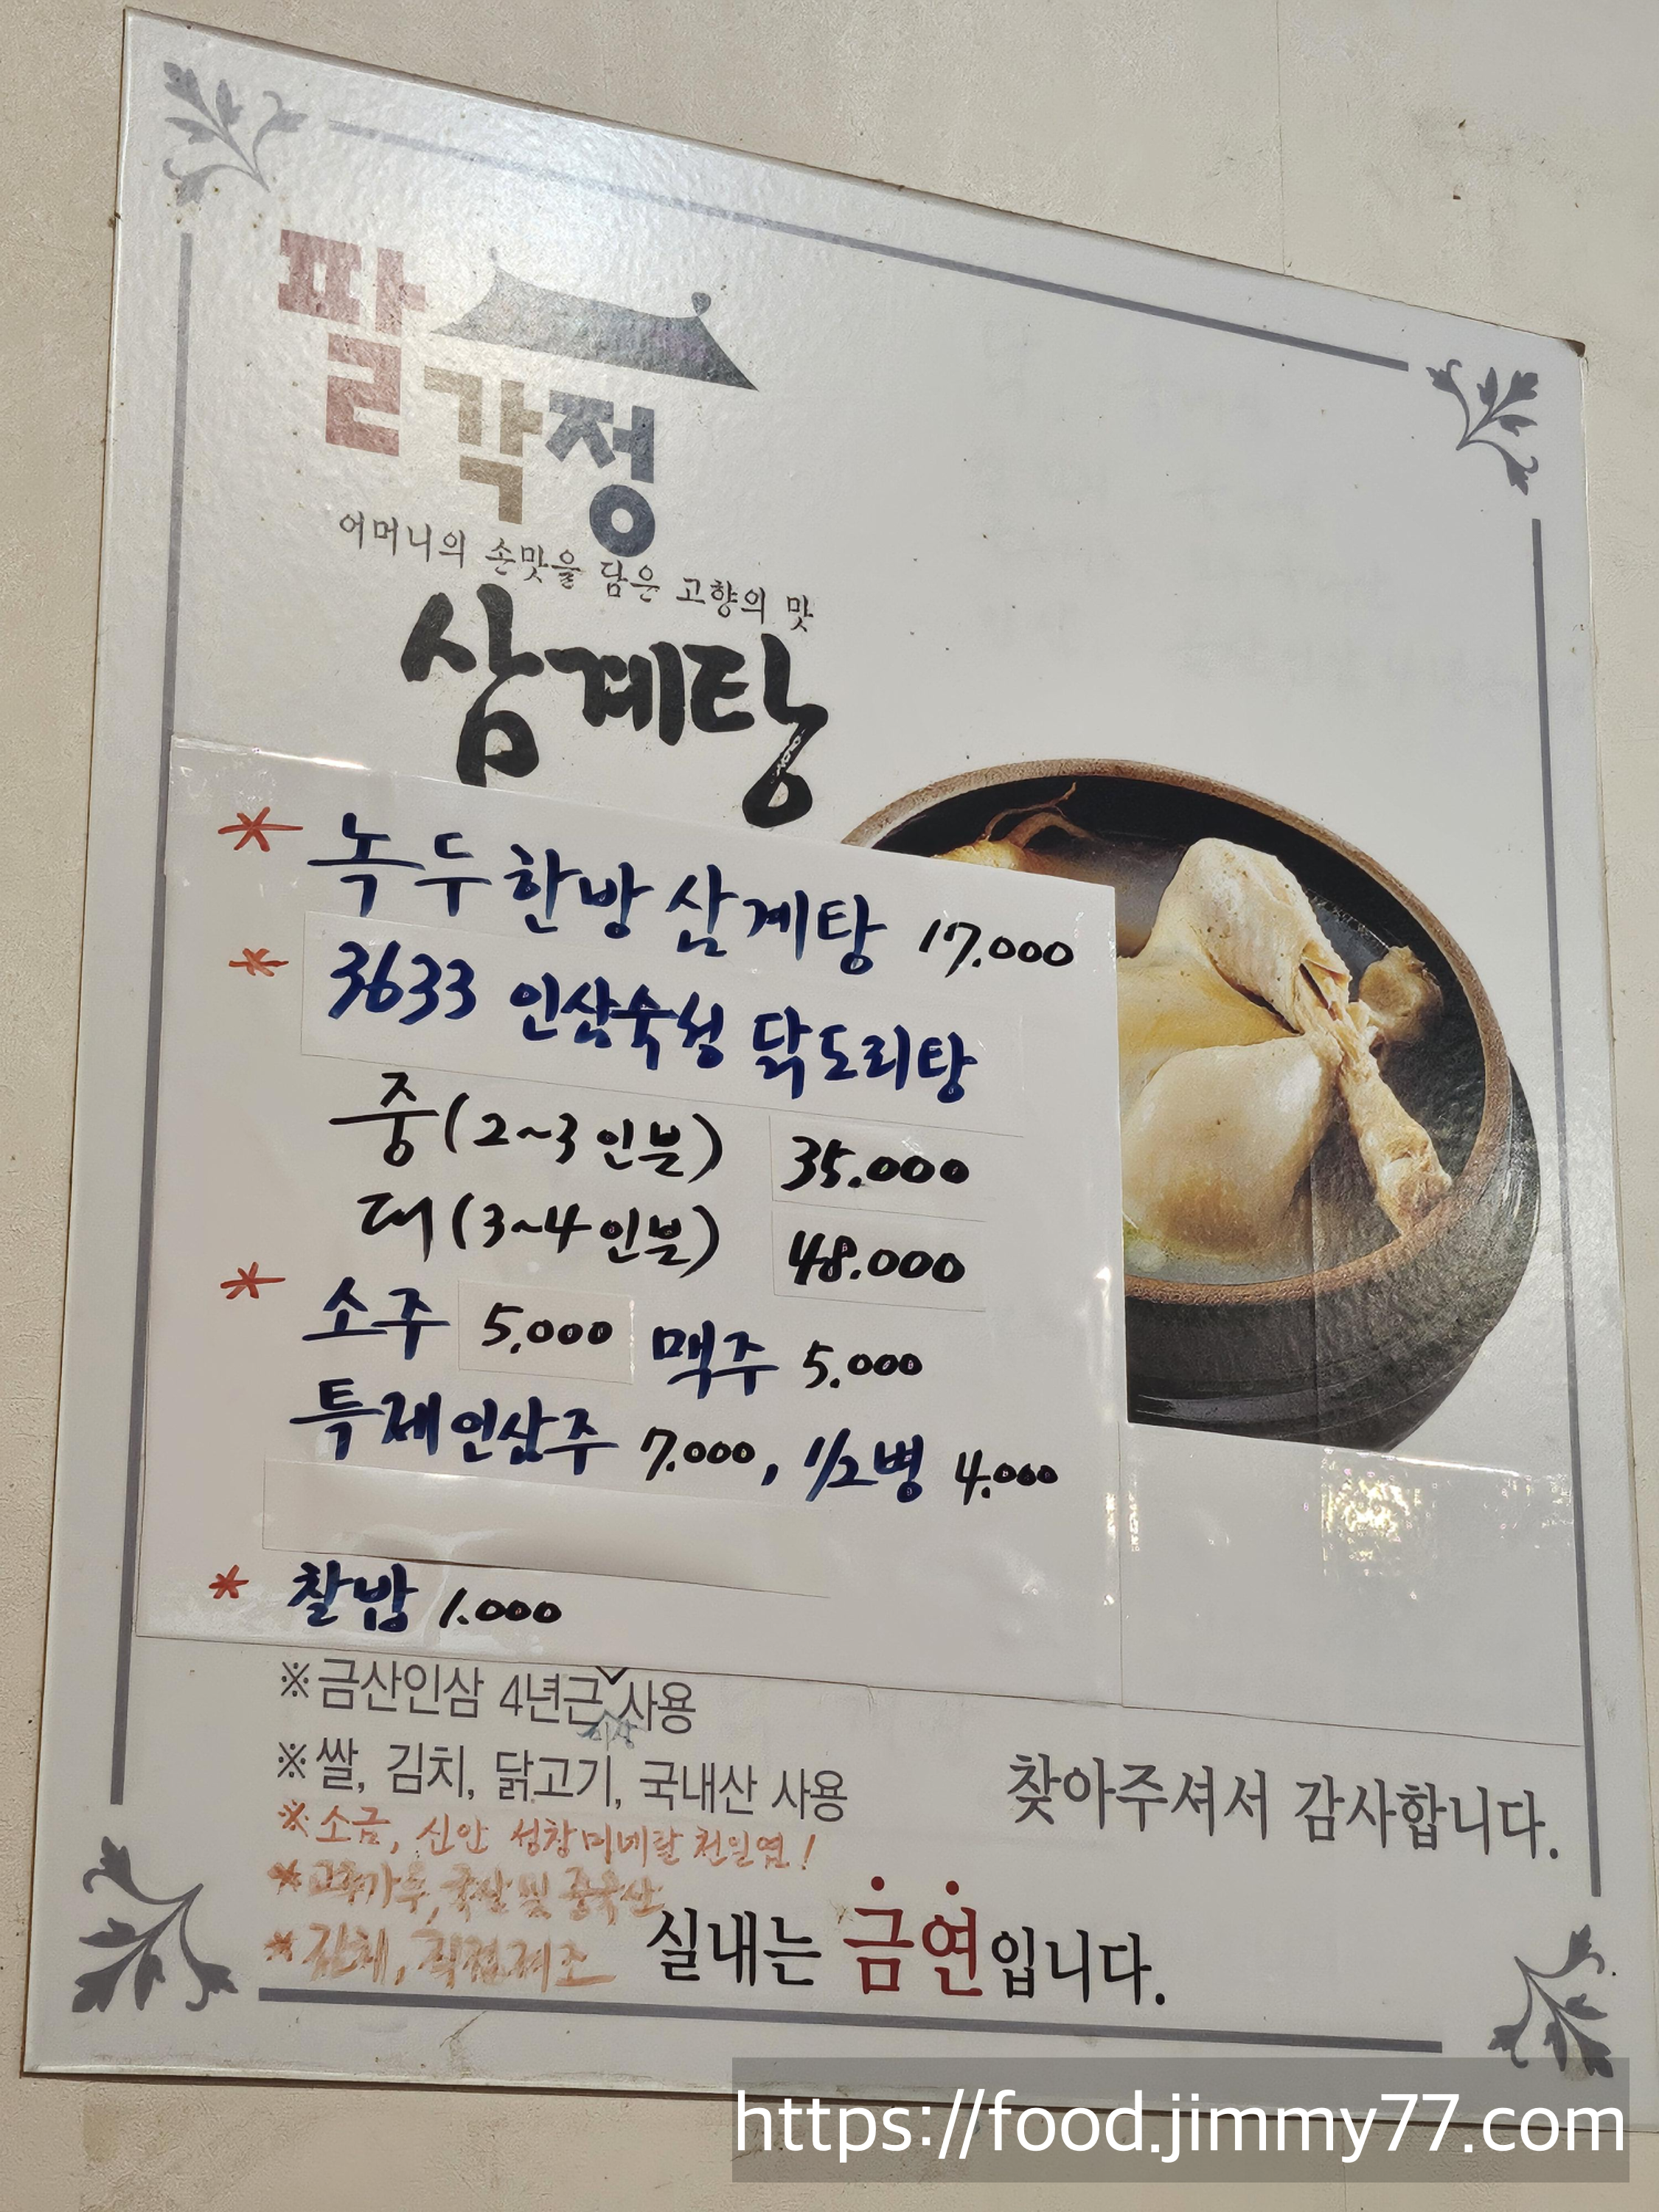 팔각정
어머니의 손맛을 담은 고향의 맛
삼계탕
* 녹두한방 삼계탕 17.000
* 3633 인삼숙성 닭도리탕
중(2~3인분) 35.000
대(3~4인분) 48.000
* 소주 5.000 맥주 5.000
특제인삼주 7.000, 1/2병 4.000
* 찰밥 1.000
※금산인삼 4년근 이상 사용
※쌀, 김치, 닭고기, 국내산 사용
※소금, 신안 성창미네랄 천일염!
※고추가루, 국산 및 중국산
※김치, 직접제조
찾아주셔서 감사합니다.
실내는 금연입니다.
https://food.jimmy77.com